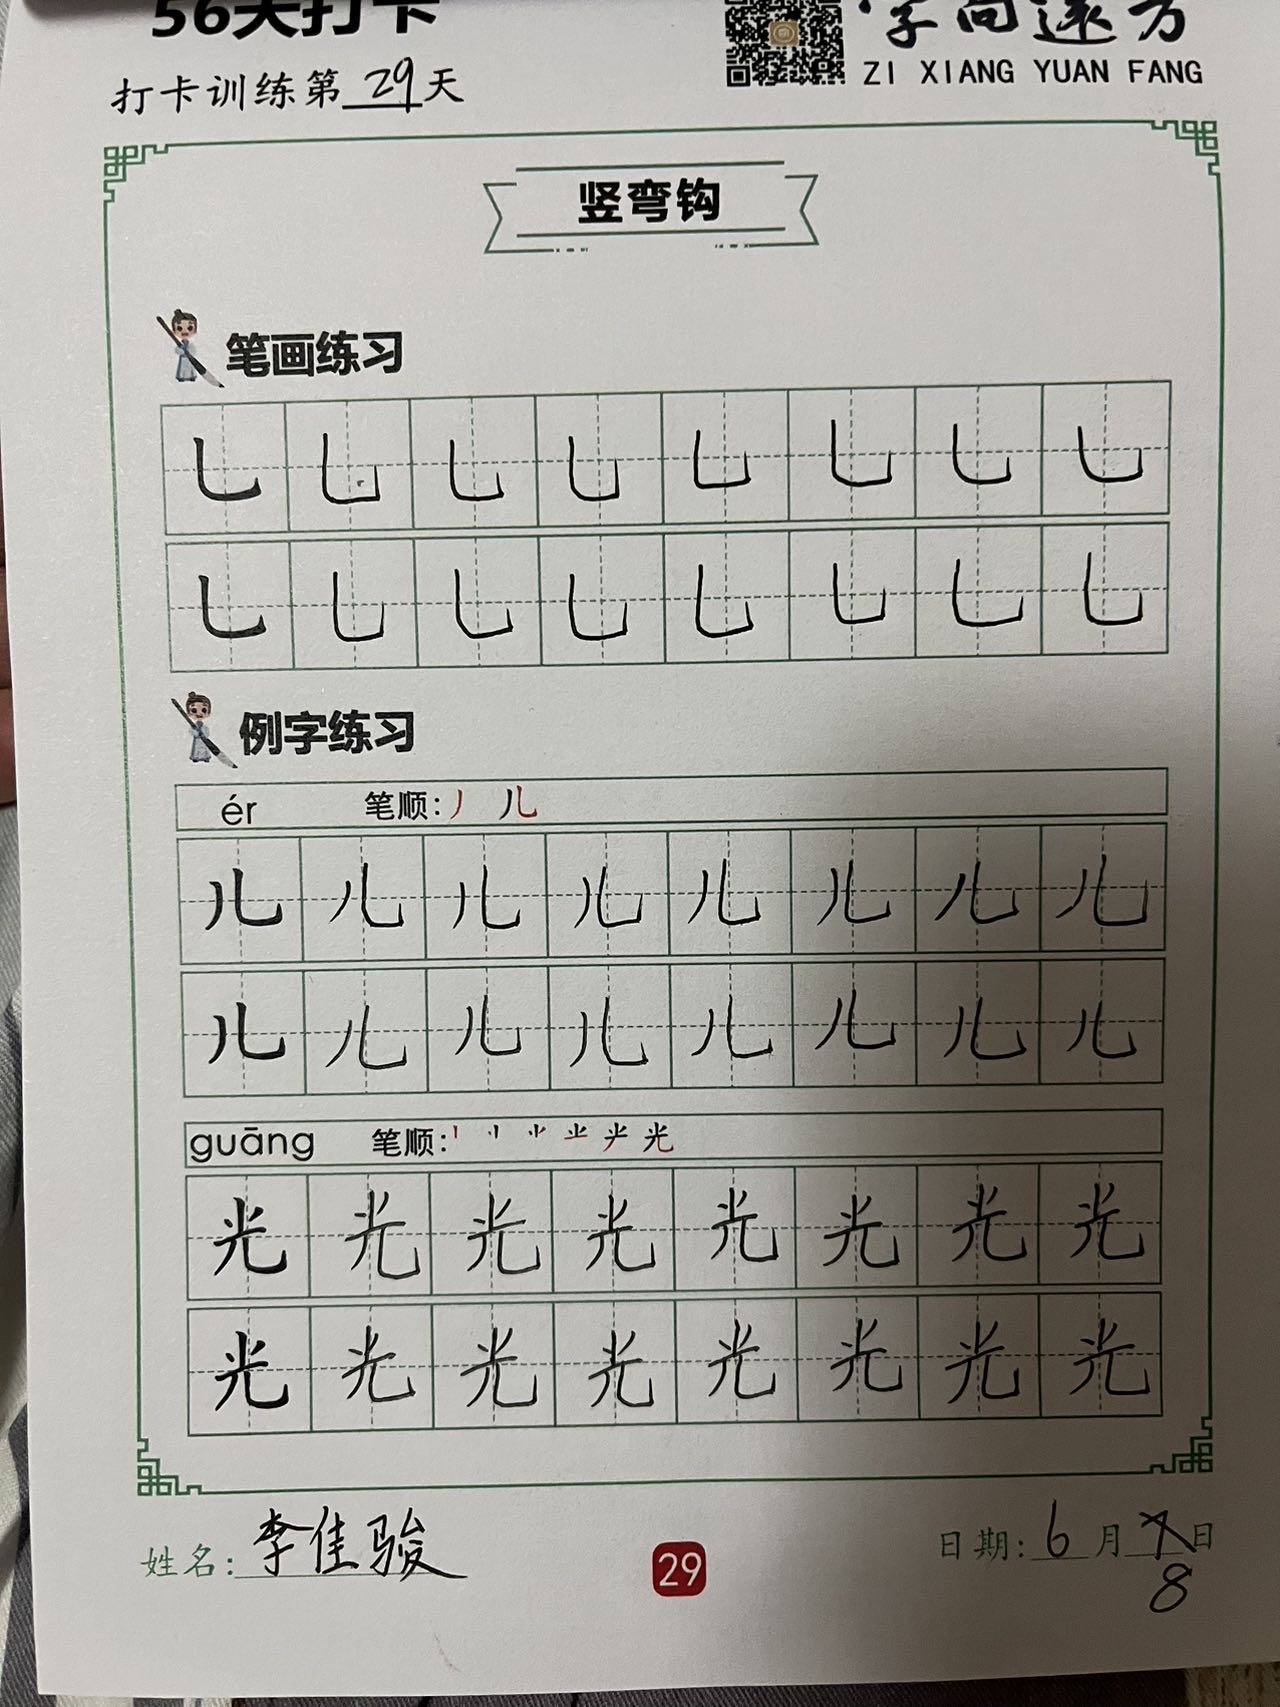 56天打卡
字向远方
ZI XIANG YUAN FANG
打卡训练第29天
竖弯钩
笔画练习
乚乚乚乚乚乚乚乚
乚乚乚乚乚乚乚乚
例字练习
ér 笔顺:丿 儿
儿儿儿儿儿儿儿儿
儿儿儿儿儿儿儿儿
guāng 笔顺: 光
光光光光光光光光
光光光光光光光光
姓名:李佳骏
29
日期:6月8日